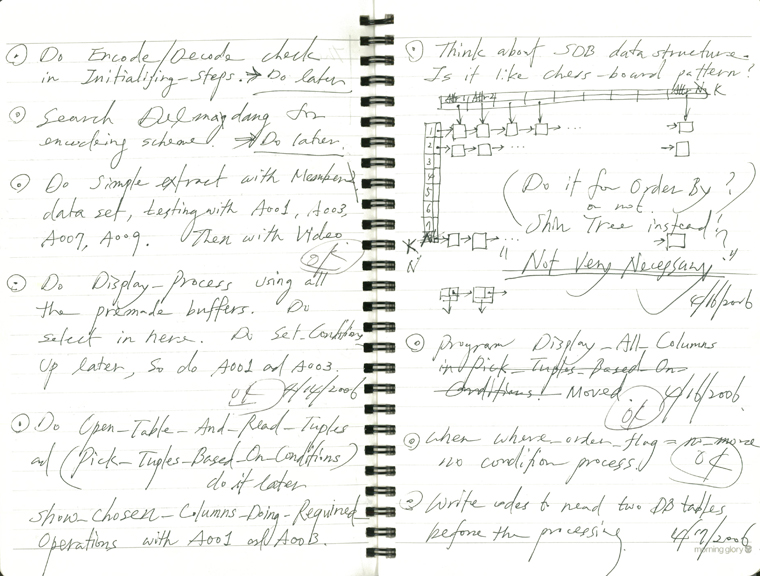 Do Encode/Decode check
in Initializing-steps. → Do later.
Search Delmagdang for
encoding scheme. → Do later.
Do simple extract with Members
data set, testing with A001, A003,
A007, A009. Then with Video
OK
Do Display-Process using all
the premade buffers. Do
select in here. Do Set-Condition
up later, So do A001 ad A003.
OK 4/14/2006
Do Open-Table-And-Read-Tuples
ad (Pick-Tuples-Based-On-Conditions)
do it later
show-chosen-Columns-Doing-Required
Operations with A001 ad A003.
Think about SDB data structure.
Is it like chess-board pattern?
Attr 1 Attr 2 Attr N K
1
2
3
4
5
6
7
N
K
N
(Do it for Order By?
or not.
Shin Tree instead!?
"Not Very Necessary."
4/16/2006
Program Display-All-Columns
in Pick-Tuples-Based-On-
Conditions! Moved 4/16/2006.
OK
When where-order-flag = no-more
no condition process. OK
Write codes to read two DB tables
before the processing. 4/17/2006
morning glory